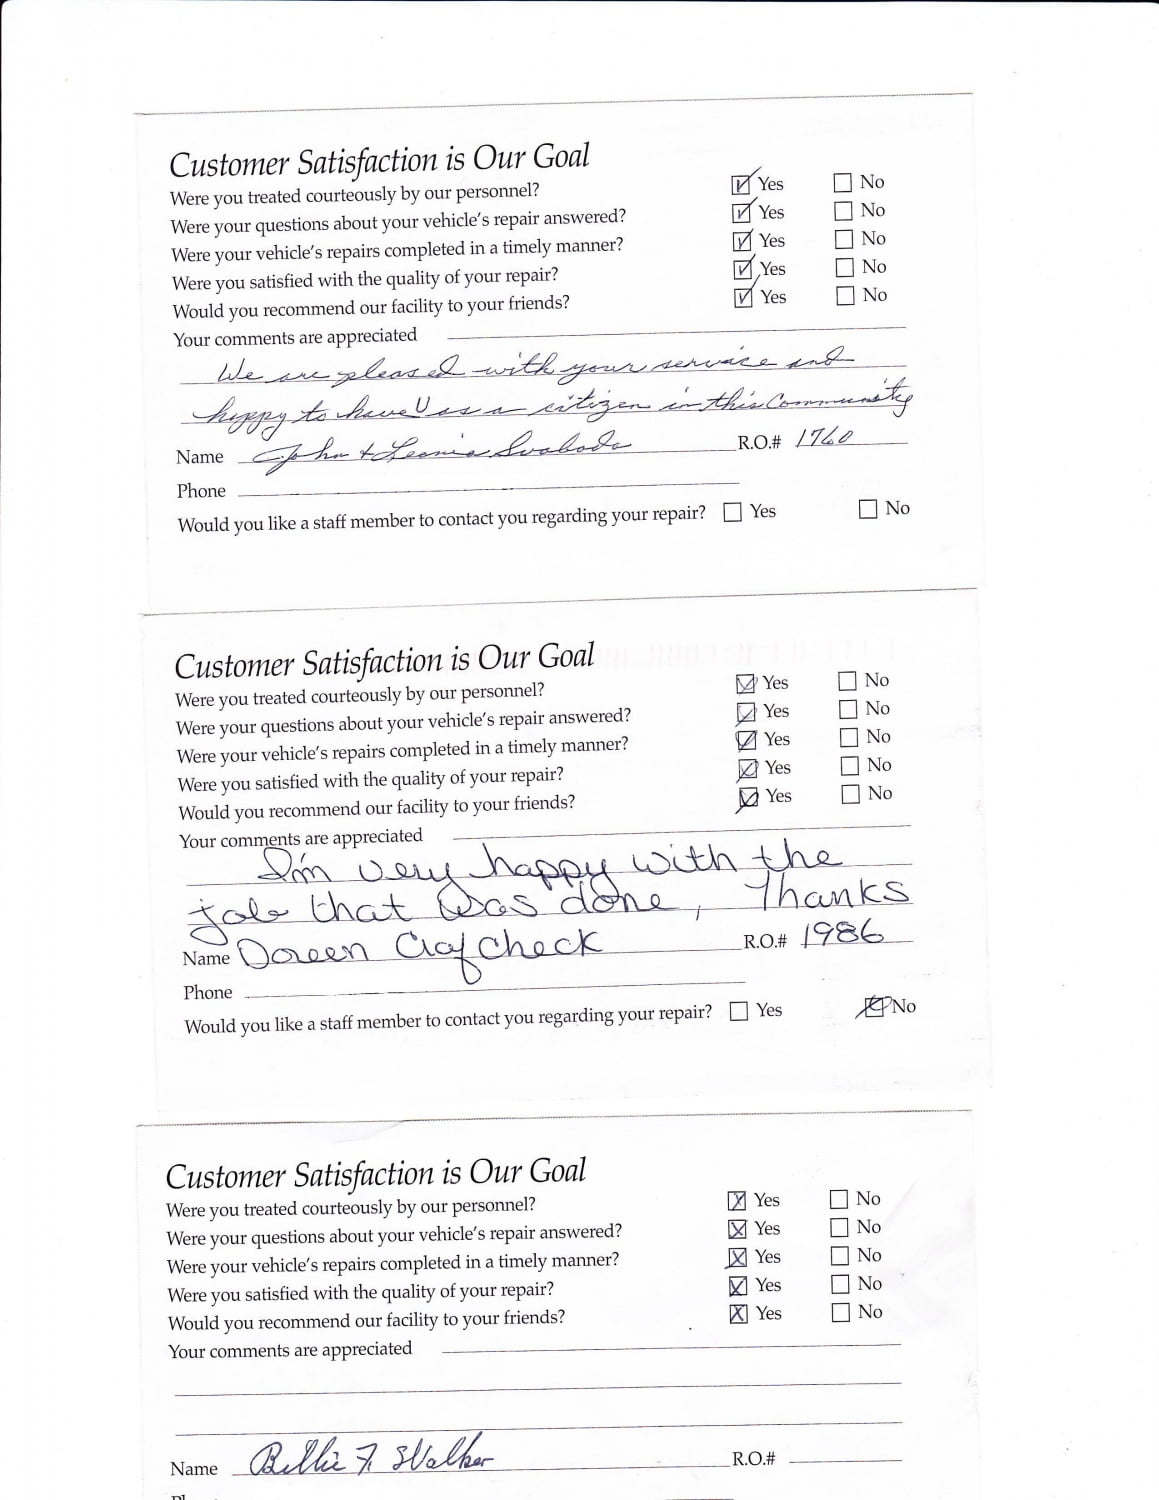 Customer Satisfaction is Our Goal
Were you treated courteously by our personnel? Yes No
Were your questions about your vehicle's repair answered? Yes No
Were your vehicle's repairs completed in a timely manner? Yes No
Were you satisfied with the quality of your repair? Yes No
Would you recommend our facility to your friends? Yes No
Your comments are appreciated
We are pleased with your service and
happy to have U as a citizen in this Community
Name John + Leonia Svoboda R.O.# 1760
Phone
Would you like a staff member to contact you regarding your repair? Yes No
Customer Satisfaction is Our Goal
Were you treated courteously by our personnel? Yes No
Were your questions about your vehicle's repair answered? Yes No
Were your vehicle's repairs completed in a timely manner? Yes No
Were you satisfied with the quality of your repair? Yes No
Would you recommend our facility to your friends? Yes No
Your comments are appreciated
I'm very happy with the
job that was done, Thanks
Name Doreen R.O.# 1986
Phone
Would you like a staff member to contact you regarding your repair? Yes No
Customer Satisfaction is Our Goal
Were you treated courteously by our personnel? Yes No
Were your questions about your vehicle's repair answered? Yes No
Were your vehicle's repairs completed in a timely manner? Yes No
Were you satisfied with the quality of your repair? Yes No
Would you recommend our facility to your friends? Yes No
Your comments are appreciated
Name Billie F. Walker R.O.#